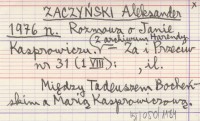 ZACZYŃSKI Aleksander
1976 r. Rozmowa o Janie
(Z archiwum Harendy
Kasprowiczu. — Za i Przeciw
nr 31 (1 VIII): il.
Między Tadeuszem Bocheń-
skim a Marią Kasprowiczową.